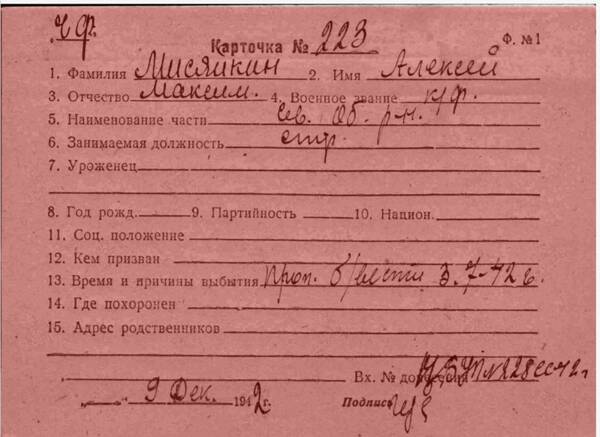 Ч.Ф.
Карточка № 223 Ф. №1
1. Фамилия Мисяйкин 2. Имя Алексей
3. Отчество Максим. 4. Военное звание к/ф.
5. Наименование части Сев. Об. р-н.
6. Занимаемая должность стр.
7. Уроженец
8. Год рожд. 9. Партийность 10. Национ.
11. Соц. положение
12. Кем призван
13. Время и причины выбытия проп. б/вести 3.7-42 г.
14. Где похоронен
15. Адрес родственников
Вх. № донесения
9 Дек. 1942 г. Подпись